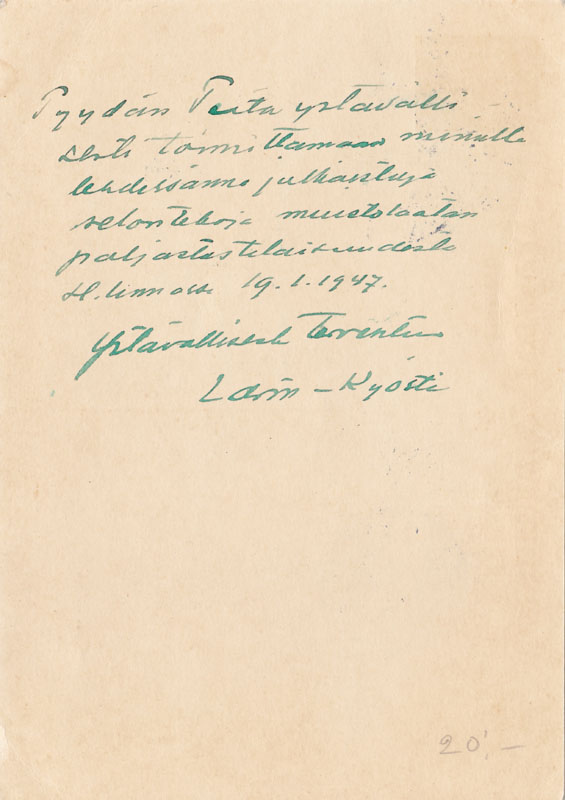 Pyydän Teitä ystävälli
sesti toimittamaan minulle
lehdessänne julkaistuja
selontekoja muistolaatan
paljastustilaisuudesta
H.linnassa 19.1.1947.
Ystävällisesti tervehtien
Larin-Kyösti
20,-